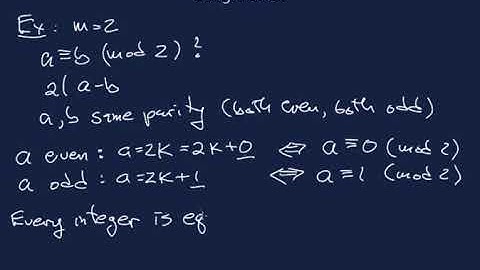 Ex: m=2
a≡b (mod 2) ?
2| a-b
a, b same parity (both even, both odd)
a even: a=2K=2K+0 ⇔ a≡0 (mod 2)
a odd: a=2K+1 ⇔ a≡1 (mod 2)
Every integer is eq